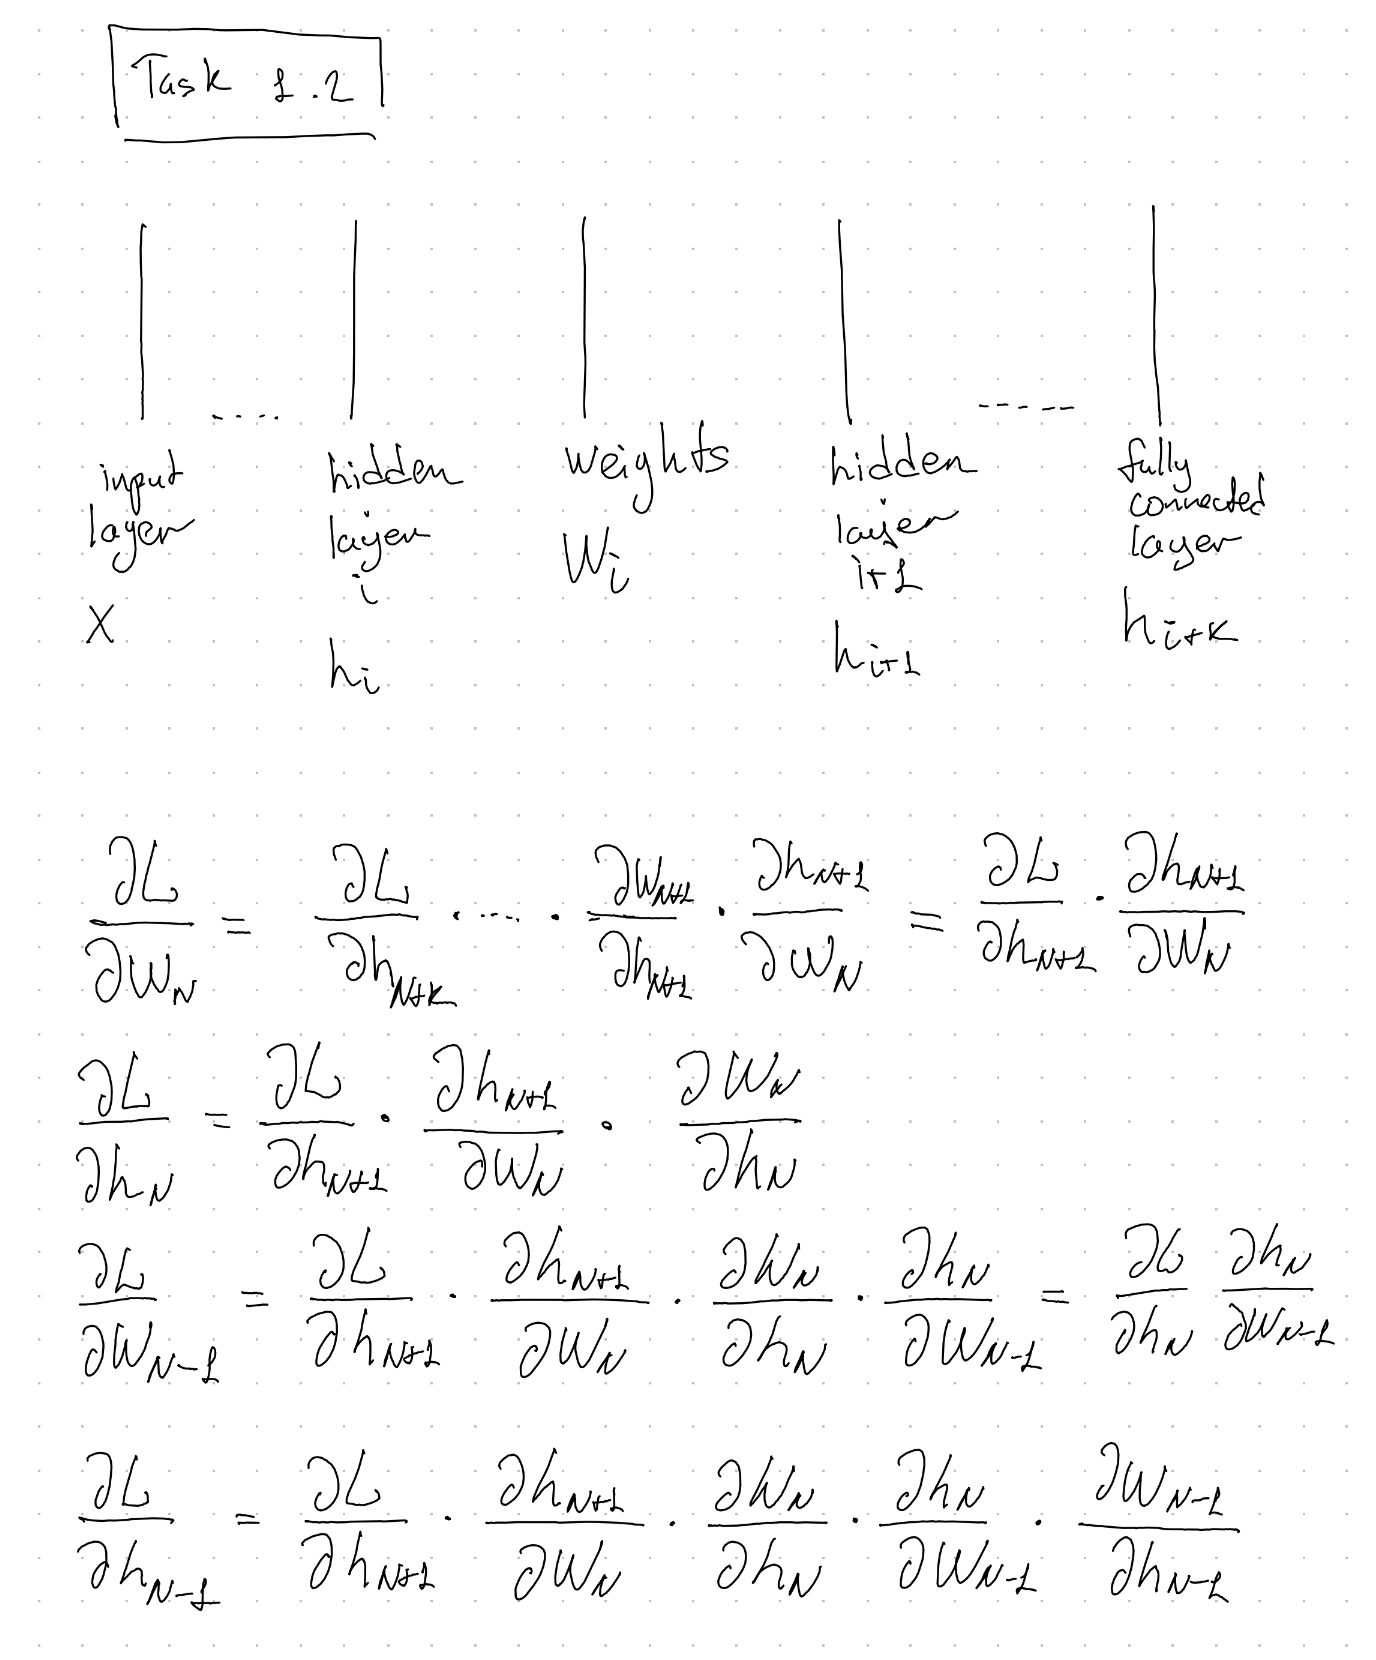 Task 1.2
input layer X
hidden layer i h_i
weights W_i
hidden layer i+1 h_{i+1}
fully connected layer h_{i+k}
∂L/∂W_N = ∂L/∂h_{N+k} · .... · ∂W_{N+1}/∂h_{N+1} · ∂h_{N+1}/∂W_N = ∂L/∂h_{N+1} · ∂h_{N+1}/∂W_N
∂L/∂h_N = ∂L/∂h_{N+1} · ∂h_{N+1}/∂W_N · ∂W_N/∂h_N
∂L/∂W_{N-1} = ∂L/∂h_{N+1} · ∂h_{N+1}/∂W_N · ∂W_N/∂h_N · ∂h_N/∂W_{N-1} = ∂L/∂h_N ∂h_N/∂W_{N-1}
∂L/∂h_{N-1} = ∂L/∂h_{N+1} · ∂h_{N+1}/∂W_N · ∂W_N/∂h_N · ∂h_N/∂W_{N-1} · ∂W_{N-1}/∂h_{N-1}